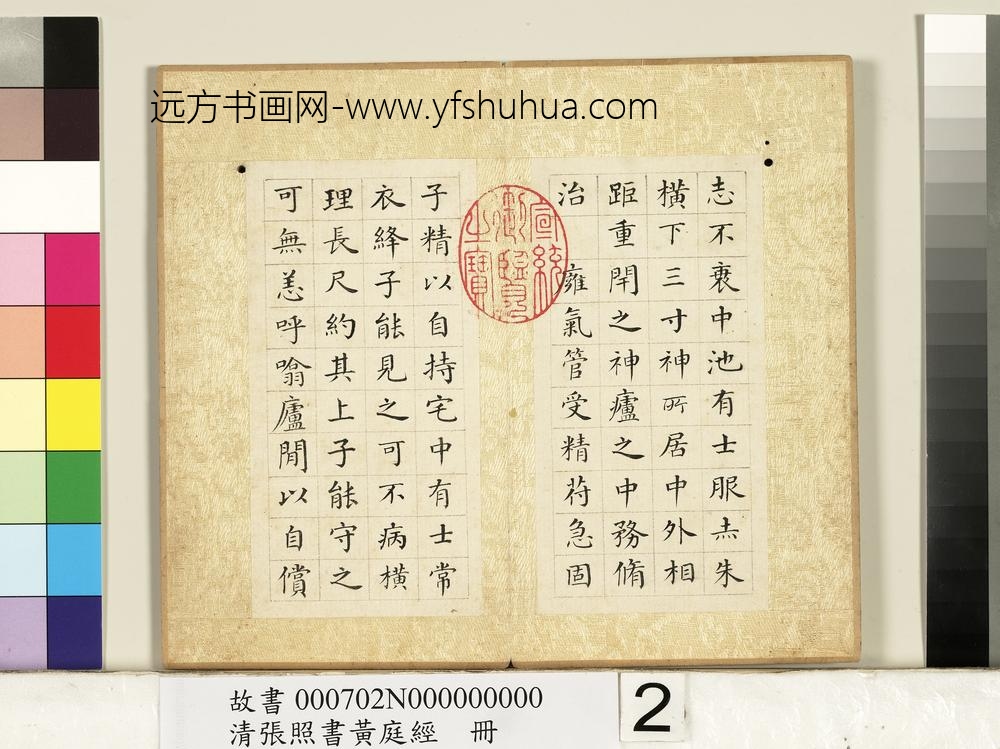 远方书画网-www.yfshuhua.com
志不衰中池有士服赤朱
橫下三寸神所居中外相
距重閇之神廬之中務脩
治 廱氣管受精苻急固
子精以自持宅中有士常
衣絳子能見之可不病橫
理長尺約其上子能守之
可無恙呼噏廬閒以自償
宣統御覽之寶
故書 000702N000000000
清張照書黃庭經 冊
2